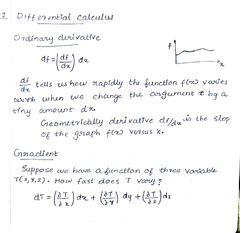 2 Differential calculus
Ordinary derivative
df = (df/dx) dx
f
x
df/dx tells us how rapidly the function f(x) varies
when we change the argument x by a
tiny amount dx.
Geometrically derivative df/dx is the slop
of the graph f(x) versus x.
Gradient
Suppose we have a function of three variable
T(x,y,z). How fast does T vary?
dT = (∂T/∂x) dx + (∂T/∂y) dy + (∂T/∂z) dz